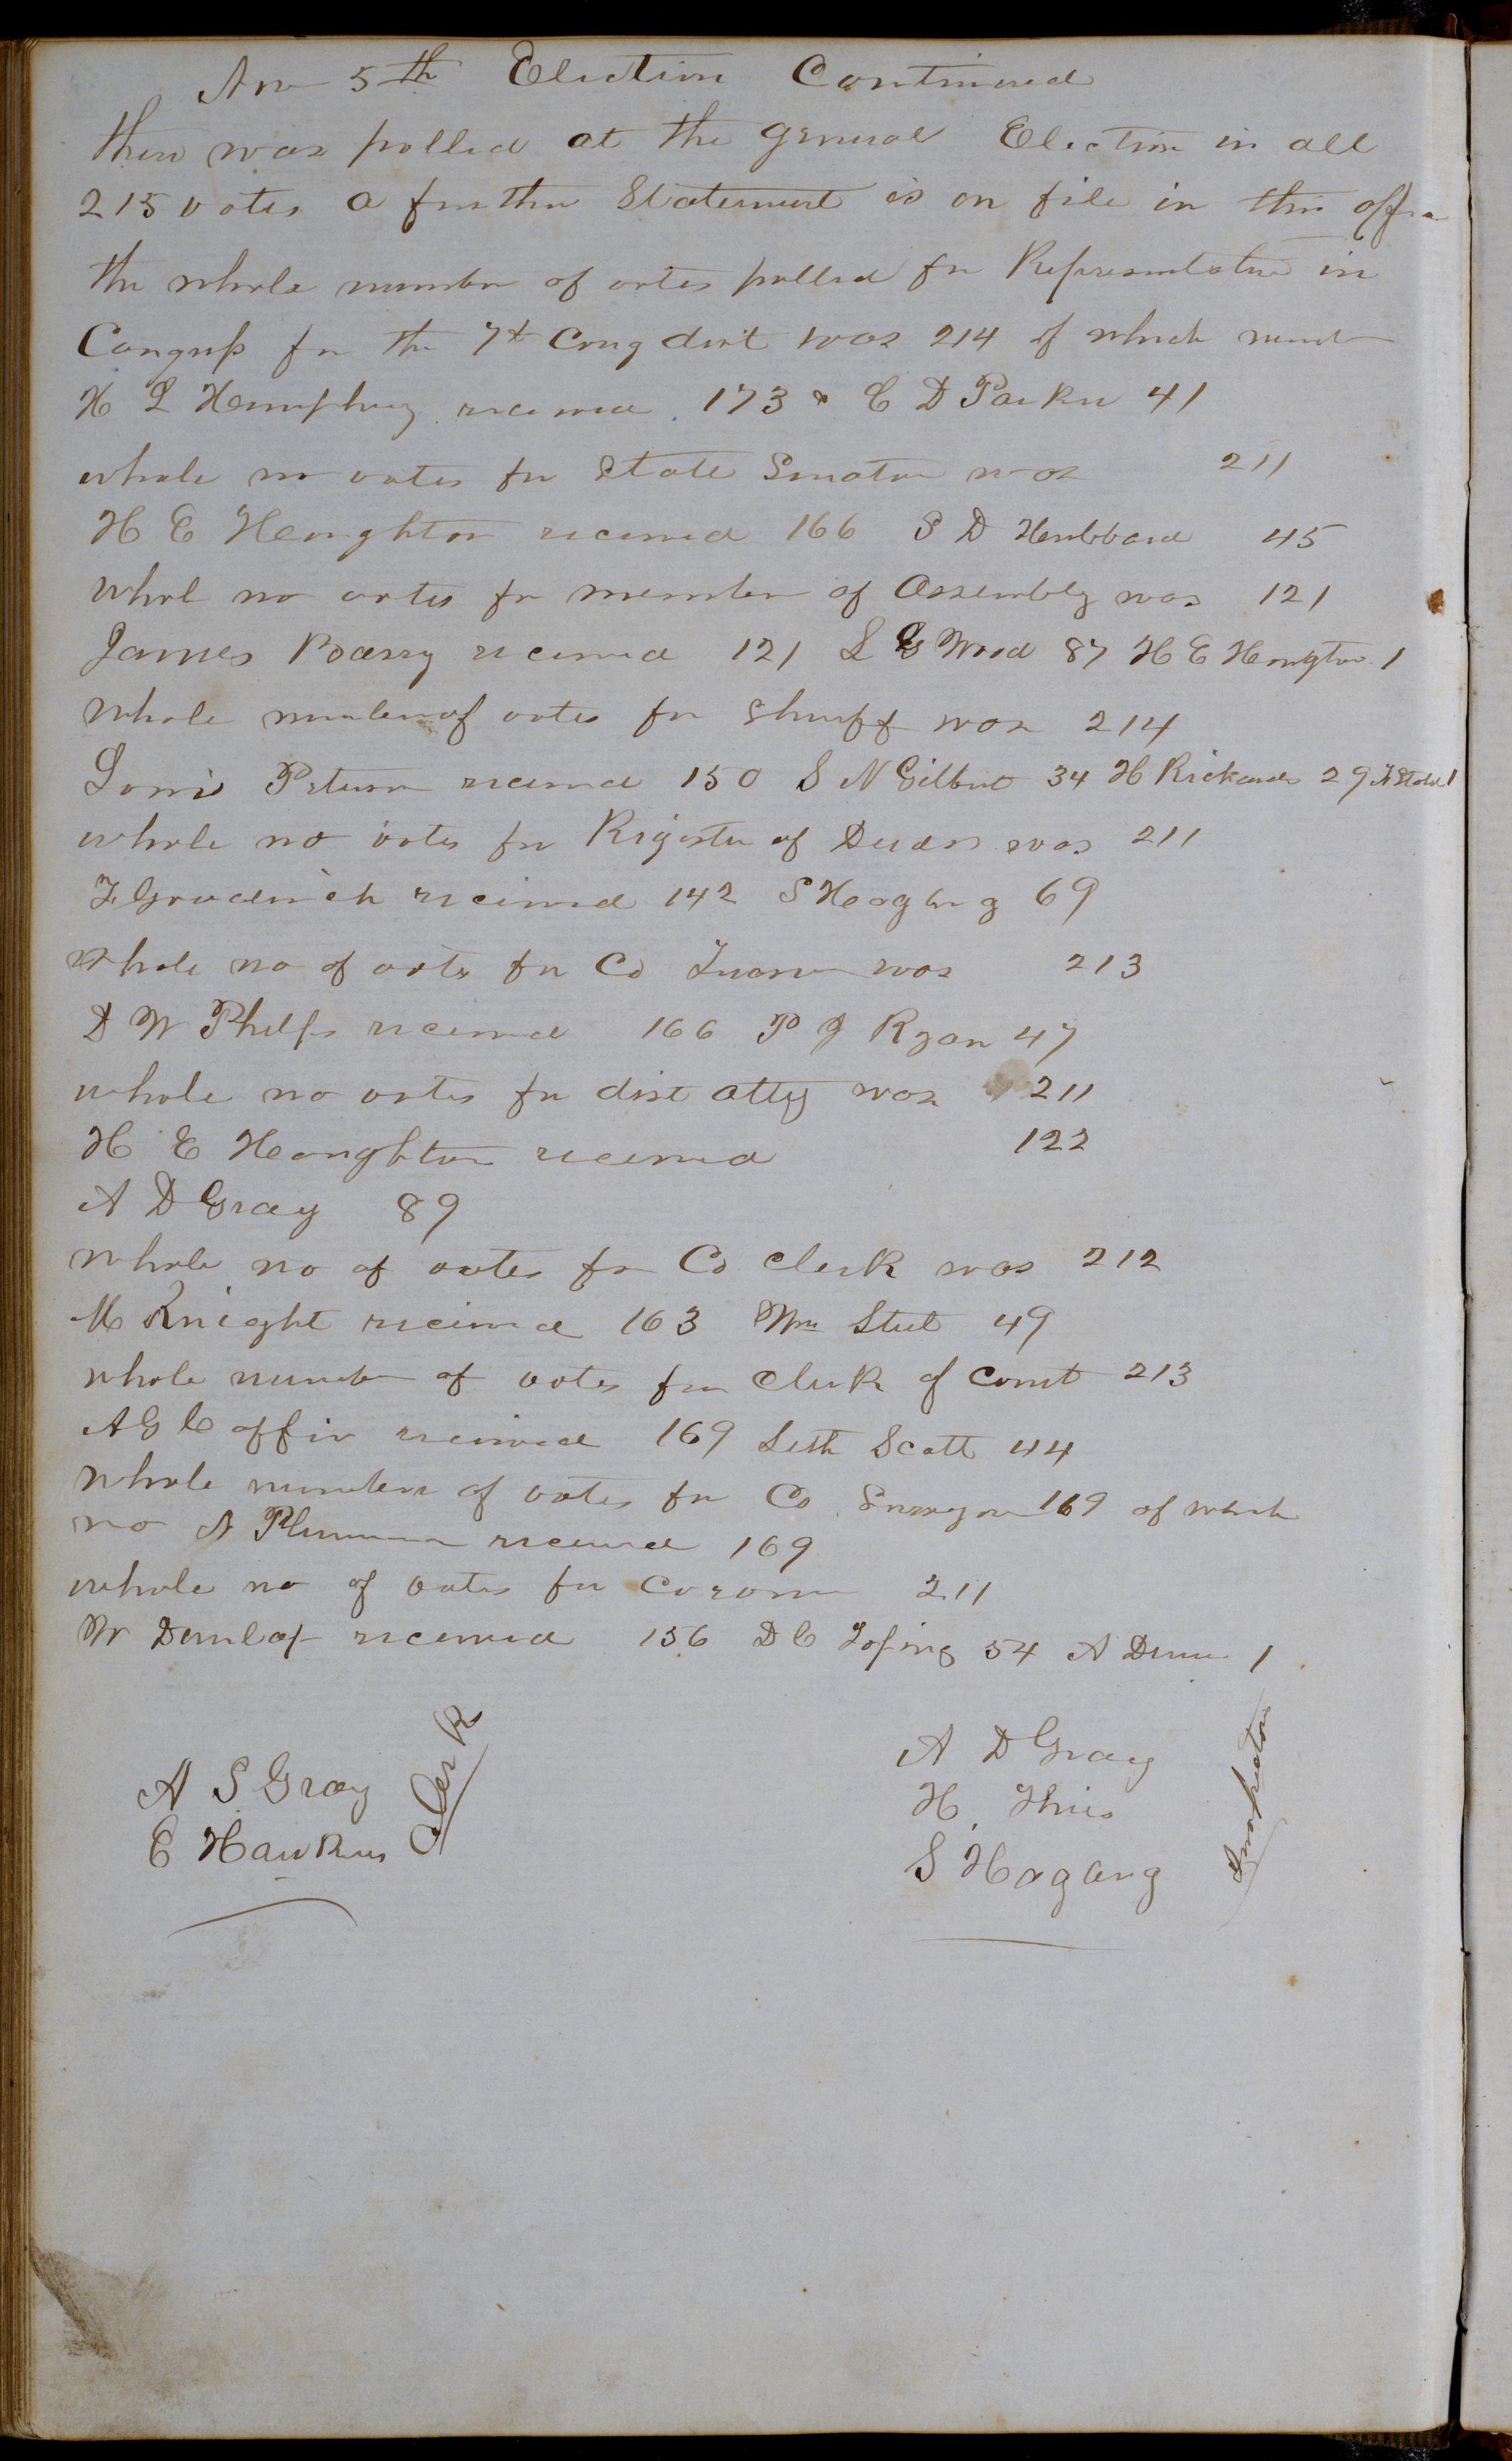 Nov 5th Election Continued
there was polled at the general Election in all
215 votes a further Statement is on file in this office
the whole number of votes polled for Representative in
Congress for the 7th Cong dist was 214 of which number
H L Humphrey received 173 & C D Parker 41
whole no votes for State Senator was 211
H E Houghton received 166 S D Hubbard 45
whole no votes for member of Assembly was 121
James Barry received 121 L G Wood 87 H E Houghton 1
whole number of votes for Sheriff was 214
Louis Peterson received 150 S N Gilbert 34 H Rickards 29 1
whole no votes for Register of Deeds was 211
received 142 S Hogang 69
whole no of votes for Co Treasurer was 213
D W Phelps received 166 P J Ryan 47
whole no votes for dist atty was 211
H E Houghton received 122
A D Gray 89
whole no of votes for Co Clerk was 212
M Knight received 163 Wm Steel 49
whole number of votes for Clerk of Court 213
A G Coffin received 169 Seth Scott 44
whole number of votes for Co Surveyor 169 of which
no A Plummer received 169
whole no of votes for Coroner 211
W Dunlap received 156 D C Toping 54 A 1
A S Gray
E Hawkins
Clerk
A D Gray
H. Thies
S Hogang
Inspectors